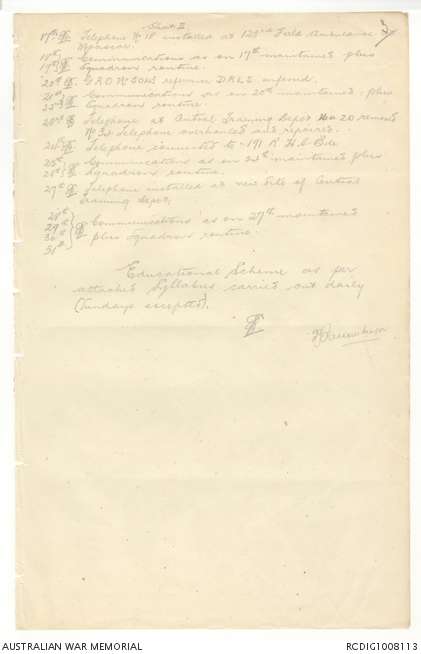 Sheet II.
17th Telephone No 18 installed at 123rd Field Ambulance
18th Communications as on 17th maintained plus
19th Squadron routine.
20th G.R.O No refernce D.R.L.S.
21st Communications as on 20th maintained plus
22nd Squadron routine.
23rd Telephone at Central Training Depot No 20 removed
No 32 Telephone overhauled and repaired.
24th Telephone connected to 191 R.H.A. Bde
25th Communications as on 24th maintained plus
26th Squadron routine.
27th Telephone installed at new site of Central
Training Depot.
28th
29th Communications as on 27th maintained
30th plus Squadron routine.
31st
Educational Scheme as per
attached Syllabus carried out daily
(Sundays excepted).
AUSTRALIAN WAR MEMORIAL
RCDIG1008113